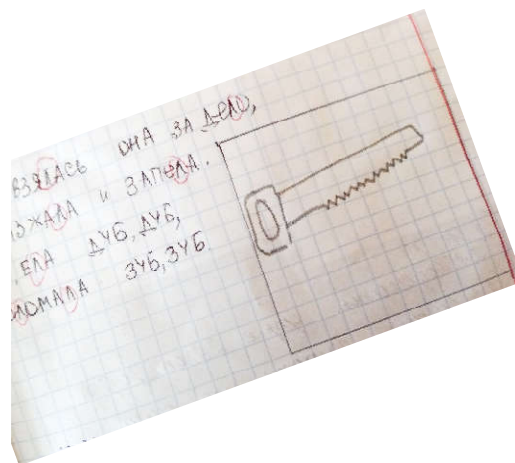 ВЗЯЛАСЬ ОНА ЗА ДЕЛО,
ЗЖАЛА И ЗАПЕЛА.
ЕЛА ДУБ, ДУБ,
ЛОМАЛА ЗУБ, ЗУБ